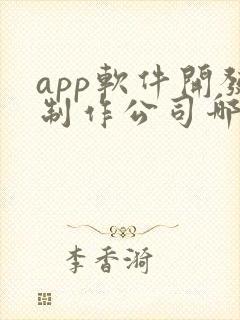 app軟件開發
制作公司哪
李香漪